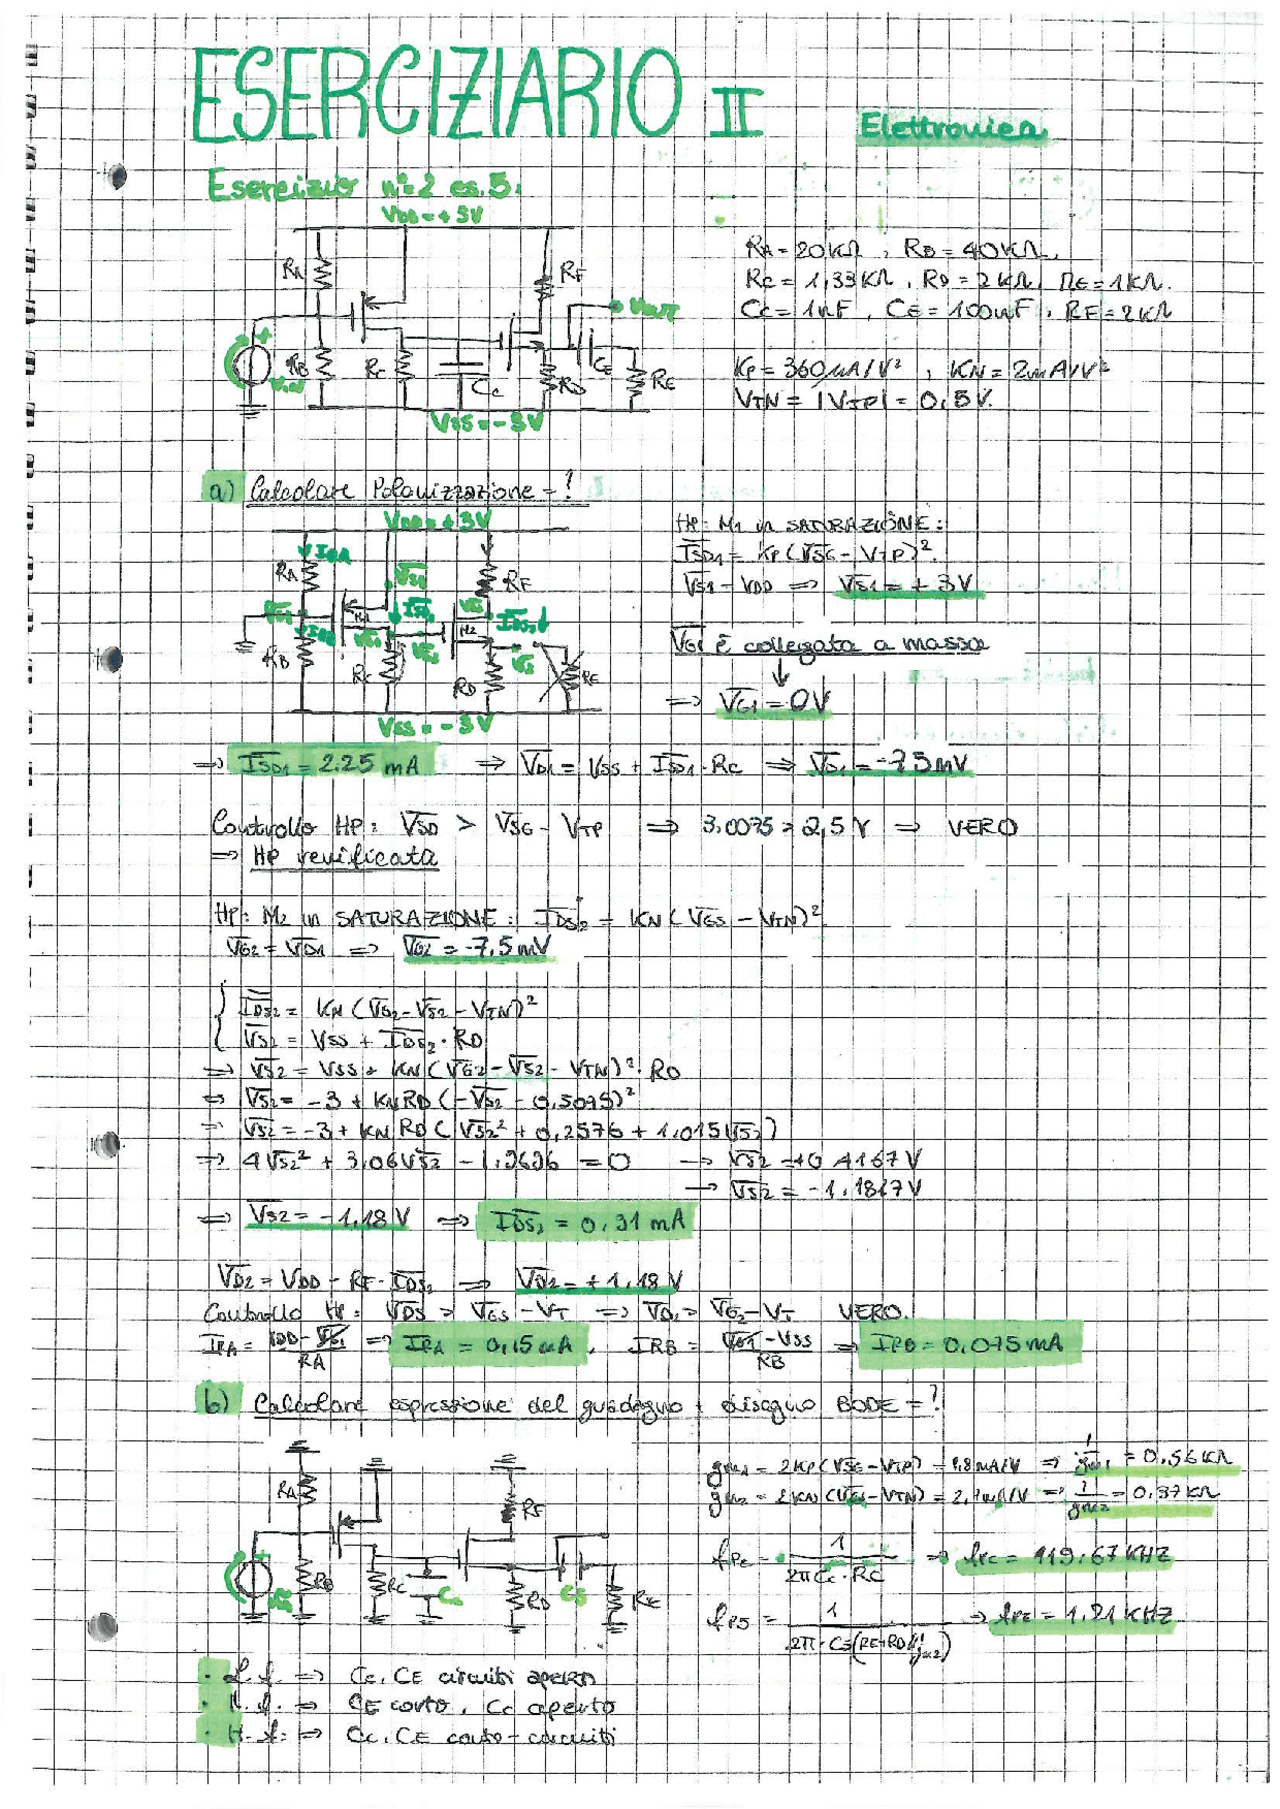 ESERCIZIARIO II
Elettronica
Esercizio n°2 es.5.
VDD=+3V
RA
RF
VOUT
+
VIN
RB
RC
CC
RD
CE
RE
VSS=-3V
RA=20KΩ, RB=40KΩ,
RC=1,33KΩ, RD=2KΩ, RE=1KΩ.
CC=1nF, CE=100nF, RF=2KΩ
KP=360µA/V², KN=2mA/V²
VTN=|VTP|=0,5V.
a) Calcolare Polarizzazione=?
VDD=+3V
IRA
RA
RF
M1
M2
IRB
RB
RC
RD
RE
VSS=-3V
HP: M1 in SATURAZIONE:
ISD1=KP(VSG-VTP)².
VS1=VDD ⇒ VS1=+3V
VG1 è collegata a massa
↓
⇒ VG1=0V
⇒ ISD1=2.25 mA ⇒ VD1=VSS+ISD1·RC ⇒ VD1=-7.5mV
Controllo HP: VSD > VSG-VTP ⇒ 3,0075>2,5V ⇒ VERO
⇒ HP verificata
HP: M2 in SATURAZIONE: IDS2=KN(VGS-VTN)²
VG2=VD1 ⇒ VG2=-7,5mV
IDS2=KN(VG2-VS2-VTN)²
VS2=VSS+IDS2·RD
⇒ VS2=VSS+KN(VG2-VS2-VTN)²·RD
⇒ VS2=-3+KNRD(-VS2-0,5075)²
⇒ VS2=-3+KNRD(VS2²+0,2576+1,015VS2)
⇒ 4VS2²+3,06VS2-1.9696=0 → VS2=+0,4167V
→ VS2=-1,1817V
⇒ VS2=-1,18V ⇒ IDS2=0,91mA
VD2=VDD-RF·IDS2 ⇒ VD2=+1,18V
Controllo HP: VDS>VGS-VT ⇒ VD2>VG2-VT VERO.
IRA=VDD-VG1/RA ⇒ IRA=0,15mA, IRB=VG1-VSS/RB ⇒ IRB=0,075mA
b) Calcolare espressione del guadagno + disegno BODE=?
RA
RF
+
RB
RC
CC
RD
RE
gm1=2KP(VSG-VTP)=1,8mA/V ⇒ 1/gm1=0,56KΩ
gm2=2KN(VGS-VTN)=2,7mA/V ⇒ 1/gm2=0,37KΩ
fPC=1/2πCC·RC ⇒ fPC=119,67KHZ
=1/2π·CE(RE+RD//1/gm2) ⇒ fPE=1,21KHZ
· L.f. ⇒ CC, CE circuiti aperti
· M.f. ⇒ CE corto, CC aperto
· H.f. ⇒ CC, CE corto-circuiti